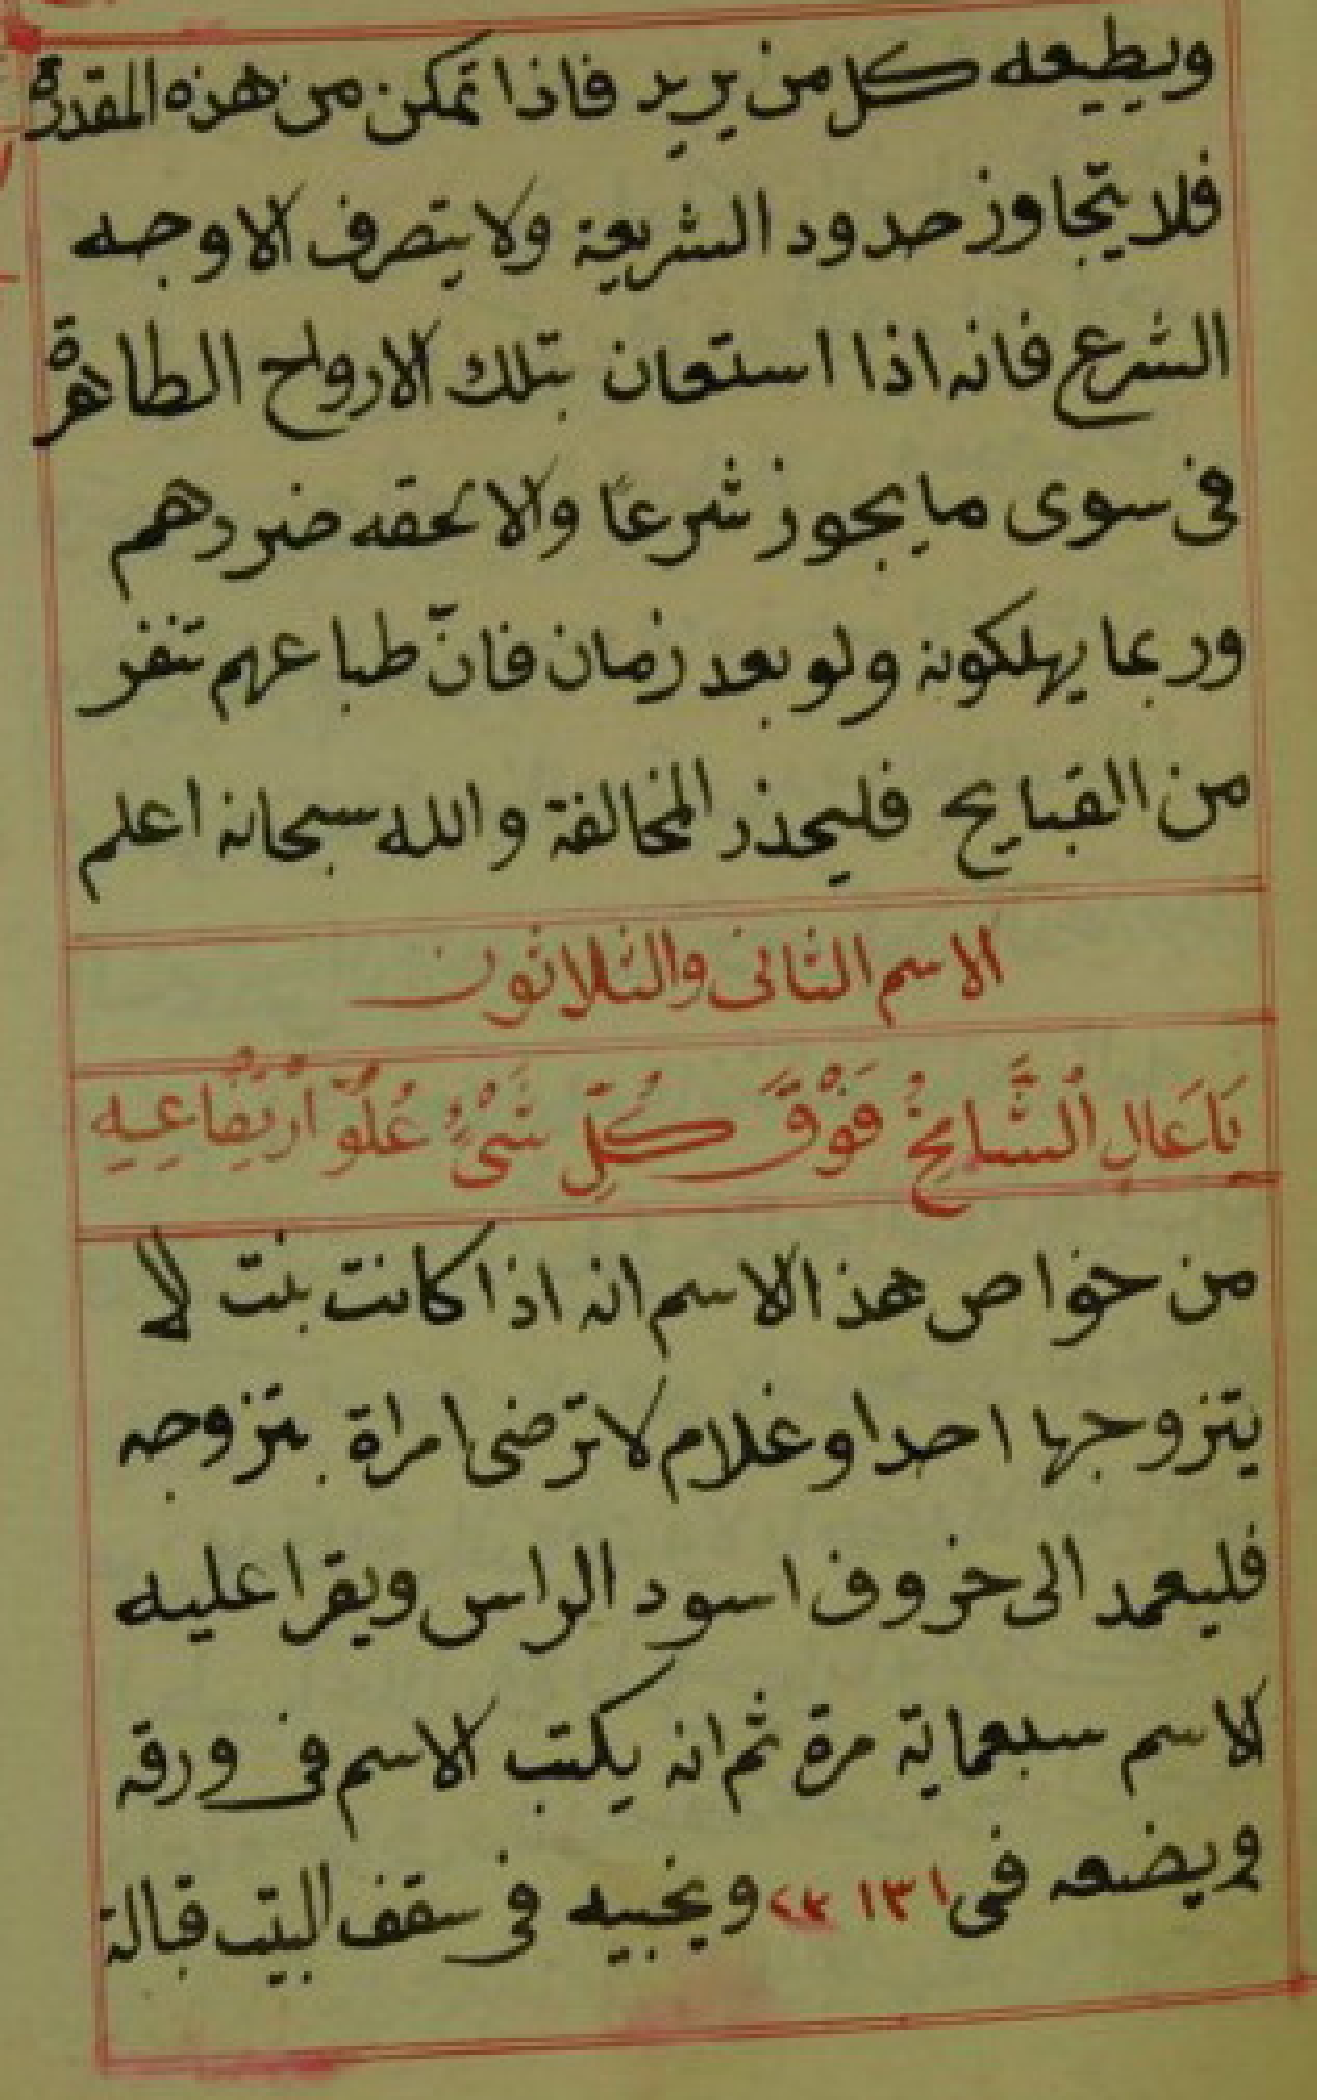 ويطيعه كل من يريد فاذا تمكن من هذه المقدرة
فلا يتجاوز حدود الشريعة ولا يتصرف الا وجه
الشرع فانه اذا استعان بتلك الارواح الطاهرة
فى سوى ما يجوز شرعًا والا لحقه ضررهم
وربما يهلكونه ولو بعد زمان فانّ طباعهم تنفر
من القبايح فليحذر المخالفة والله سبحانه اعلم
الاسم الثانى والثلاثون
يَا عَالِ الشَّامِخُ فَوْقَ كُلِّ شَىْءٍ عُلُوُّ ارْتِفَاعِهِ
من خواص هذا الاسم انه اذا كانت بنت لا
يتزوجها احد او غلام لا ترضى امراة بتزوجه
فليعمد الى خروف اسود الراس ويقرا عليه
الاسم سبعماية مرة ثم انه يكتب الاسم فى ورقه
ويضعه فى ويخبيه فى سقف البيت قبالة